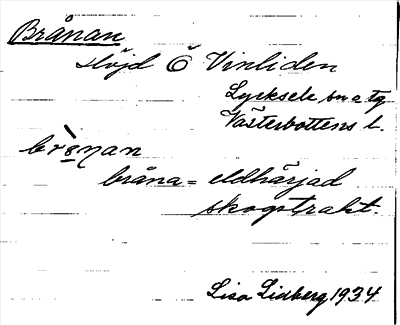 Brånan
Höjd Ö Vinliden
Lycksele sn o tg
Västerbottens l.
brånan
bråna = eldhärjad
skogstrakt.
Lisa Lidberg 1934